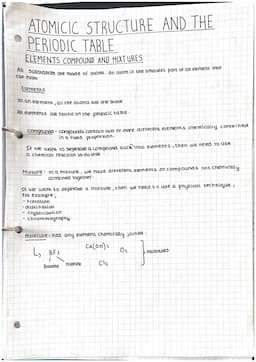 ATOMICIC STRUCTURE AND THE
PERIODIC TABLE
ELEMENTS, COMPOUND AND MIXTURES
All substances are made of atoms. An atom is the smallest part of an element that
can exist.
Elements
In an element, all the atoms are the same
All elements are found on the periodic table.
Compound - compounds contain two or more different elements chemically combined
in a fixed proportion.
If we want to separate a compound back into elements, then we need to use
a chemical reaction to do this.
Mixture - in a mixture, we have different elements or compounds not chemically
combined together.
If we want to separate a mixture, then we need to use a physical technique,
for example;
- filtration
- distillation
- crystallisation
- chromatography.
Molecule - has any element chemically joined.
BF3 Ca(OH)2 O2
molecules
fluorine Cl2